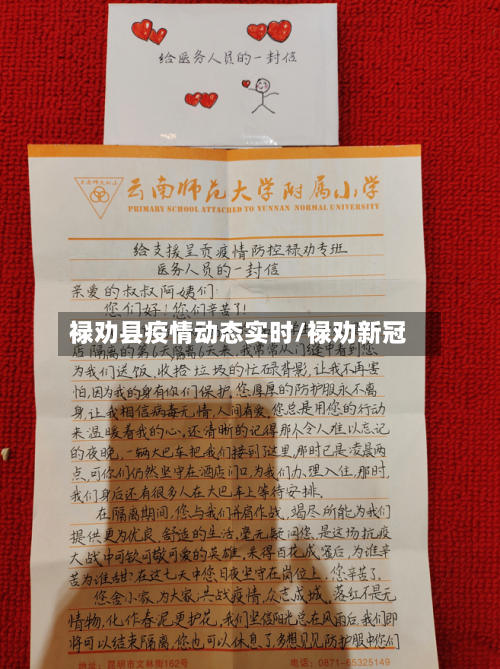 给医务人员的一封信
云南师范大学附属小学
PRIMARY SCHOOL ATTACHED TO YUNNAN NORMAL UNIVERSITY
给支援呈贡疫情防控禄劝专班
医务人员的一封信
亲爱的叔叔阿姨们:
您们好!您们辛苦了!
禄劝县疫情动态实时/禄劝新冠
店隔离的第6天隔离6天来,我常常从门缝中看到您
为我们送饭,收拾垃圾的忙碌背影,让我不再害
怕,因为我的身有你们保护,您厚厚的防护服永不离
身,让我相信病毒无情,人间有爱,您总是用您的行动
来温暖着我的心,还清晰的记得那个令人难以忘记
的夜晚,一辆大巴车把我们接到了这里,那时已是凌晨两
点,可你们仍然坚守在酒店门口,为我们办理入住,那时,
我们身后还有很多人在大巴车上等待安排。
在隔离期间,您与我们并肩作战,竭尽所能为我们
提供更为优良、舒适的生活,毫无疑问您,是这场抗疫
大战中可钦可敬可爱的英雄,采得百花成蜜后,为谁辛
苦为谁甜?在这七天中您日夜坚守在岗位上,您辛苦了。
您舍小家,为大家,共战疫情,众志成城,落红不是无
情物,化作春泥更护花,我们坚信阳光总在风雨后,我们即
将可以结束隔离,您也可以休息了,多想见见防护服中您们
地址:昆明市文林街162号
电话:0871-65325149